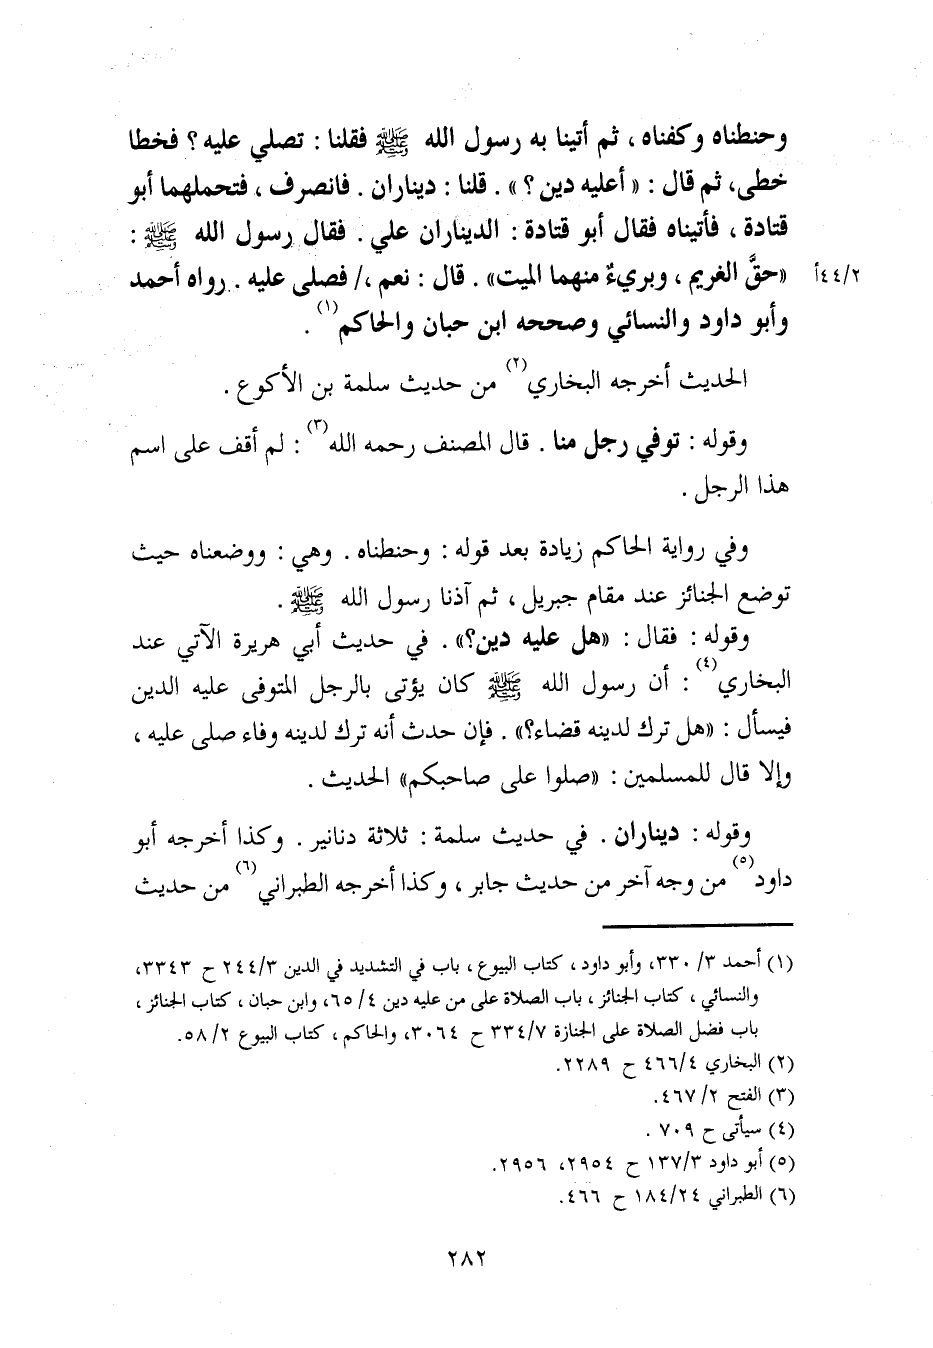 وحنطناه وكفناه ، ثم أتينا به رسول الله ﷺ فقلنا : تصلي عليه ؟ فخطا
خطى، ثم قال : « أعليه دين ؟ » . قلنا : ديناران . فانصرف ، فتحملهما أبو
قتادة ، فأتيناه فقال أبو قتادة : الديناران علي . فقال رسول الله ﷺ :
«حقَّ الغريم ، وبريءٌ منهما الميت» . قال : نعم ،/ فصلى عليه . رواه أحمد ٤٤/٢أ
وأبو داود والنسائي وصححه ابن حبان والحاكم(١) .
الحديث أخرجه البخاري(٢) من حديث سلمة بن الأكوع .
وقوله : توفي رجل منا . قال المصنف رحمه الله(٣) : لم أقف على اسم
هذا الرجل .
وفي رواية الحاكم زيادة بعد قوله : وحنطناه . وهي : ووضعناه حيث
توضع الجنائز عند مقام جبريل ، ثم آذنا رسول الله ﷺ .
وقوله : فقال : «هل عليه دين؟» . في حديث أبي هريرة الآتي عند
البخاري(٤) : أن رسول الله ﷺ كان يؤتى بالرجل المتوفى عليه الدين
فيسأل : «هل ترك لدينه قضاء؟» . فإن حدث أنه ترك لدينه وفاء صلى عليه ،
وإلا قال للمسلمين : «صلوا على صاحبكم» الحديث .
وقوله : ديناران . في حديث سلمة : ثلاثة دنانير . وكذا أخرجه أبو
داود(٥) من وجه آخر من حديث جابر ، وكذا أخرجه الطبراني(٦) من حديث
(١) أحمد ٣/ ٣٣٠، وأبو داود ، كتاب البيوع ، باب في التشديد في الدين ٢٤٤/٣ ح ٣٣٤٣،
والنسائي ، كتاب الجنائز ، باب الصلاة على من عليه دين ٤/ ٦٥، وابن حبان ، كتاب الجنائز ،
باب فضل الصلاة على الجنازة ٣٣٤/٧ ح ٣٠٦٤، والحاكم ، كتاب البيوع ٢/ ٥٨.
(٢) البخاري ٤٦٦/٤ ح ٢٢٨٩.
(٣) الفتح ٢/ ٤٦٧.
(٤) سيأتى ح ٧٠٩ .
(٥) أبو داود ١٣٧/٣ ح ٢٩٥٤، ٢٩٥٦.
(٦) الطبراني ١٨٤/٢٤ ح ٤٦٦.
٢٨٢